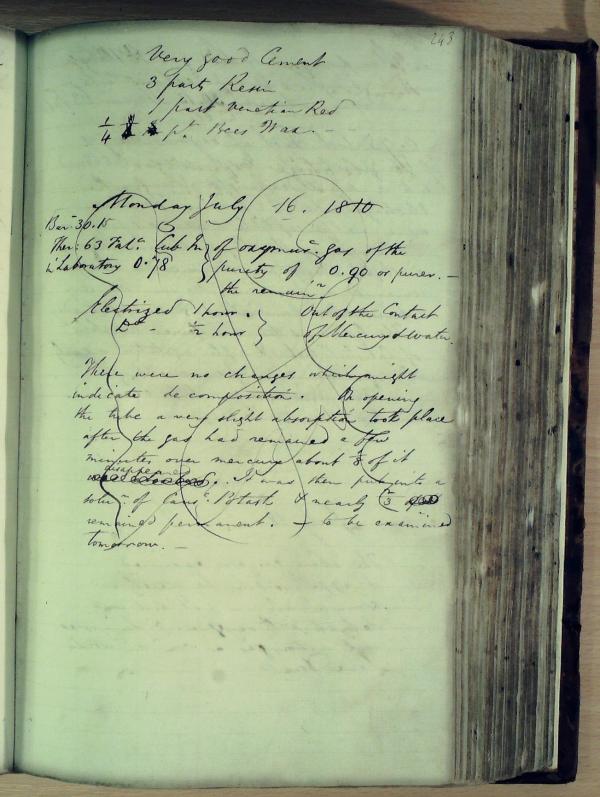 243
Very good Cement
3 parts Resin
1 part Venetian Red
1/4 pt. Bees Wax. —
Monday July 16. 1810
Bar: 30.15
Ther: 63 Cub In } of oxymurc. gas of the
Laboratory 0.78 purity of 0.90 or purer. —
the remainr
Electrized 1 hour. } Out of the Contact
Do - 1/2 hour of Mercury & water.
There were no changes which might
indicate decomposition. On opening
the tube a very slight absorption took place
after the gas had remained a few
minutes over mercury about of it
disappeared
. It was then put into a
solun of Causc. Potash & nearly 2/3
remained permanent. — to be examined
tomorrow. —